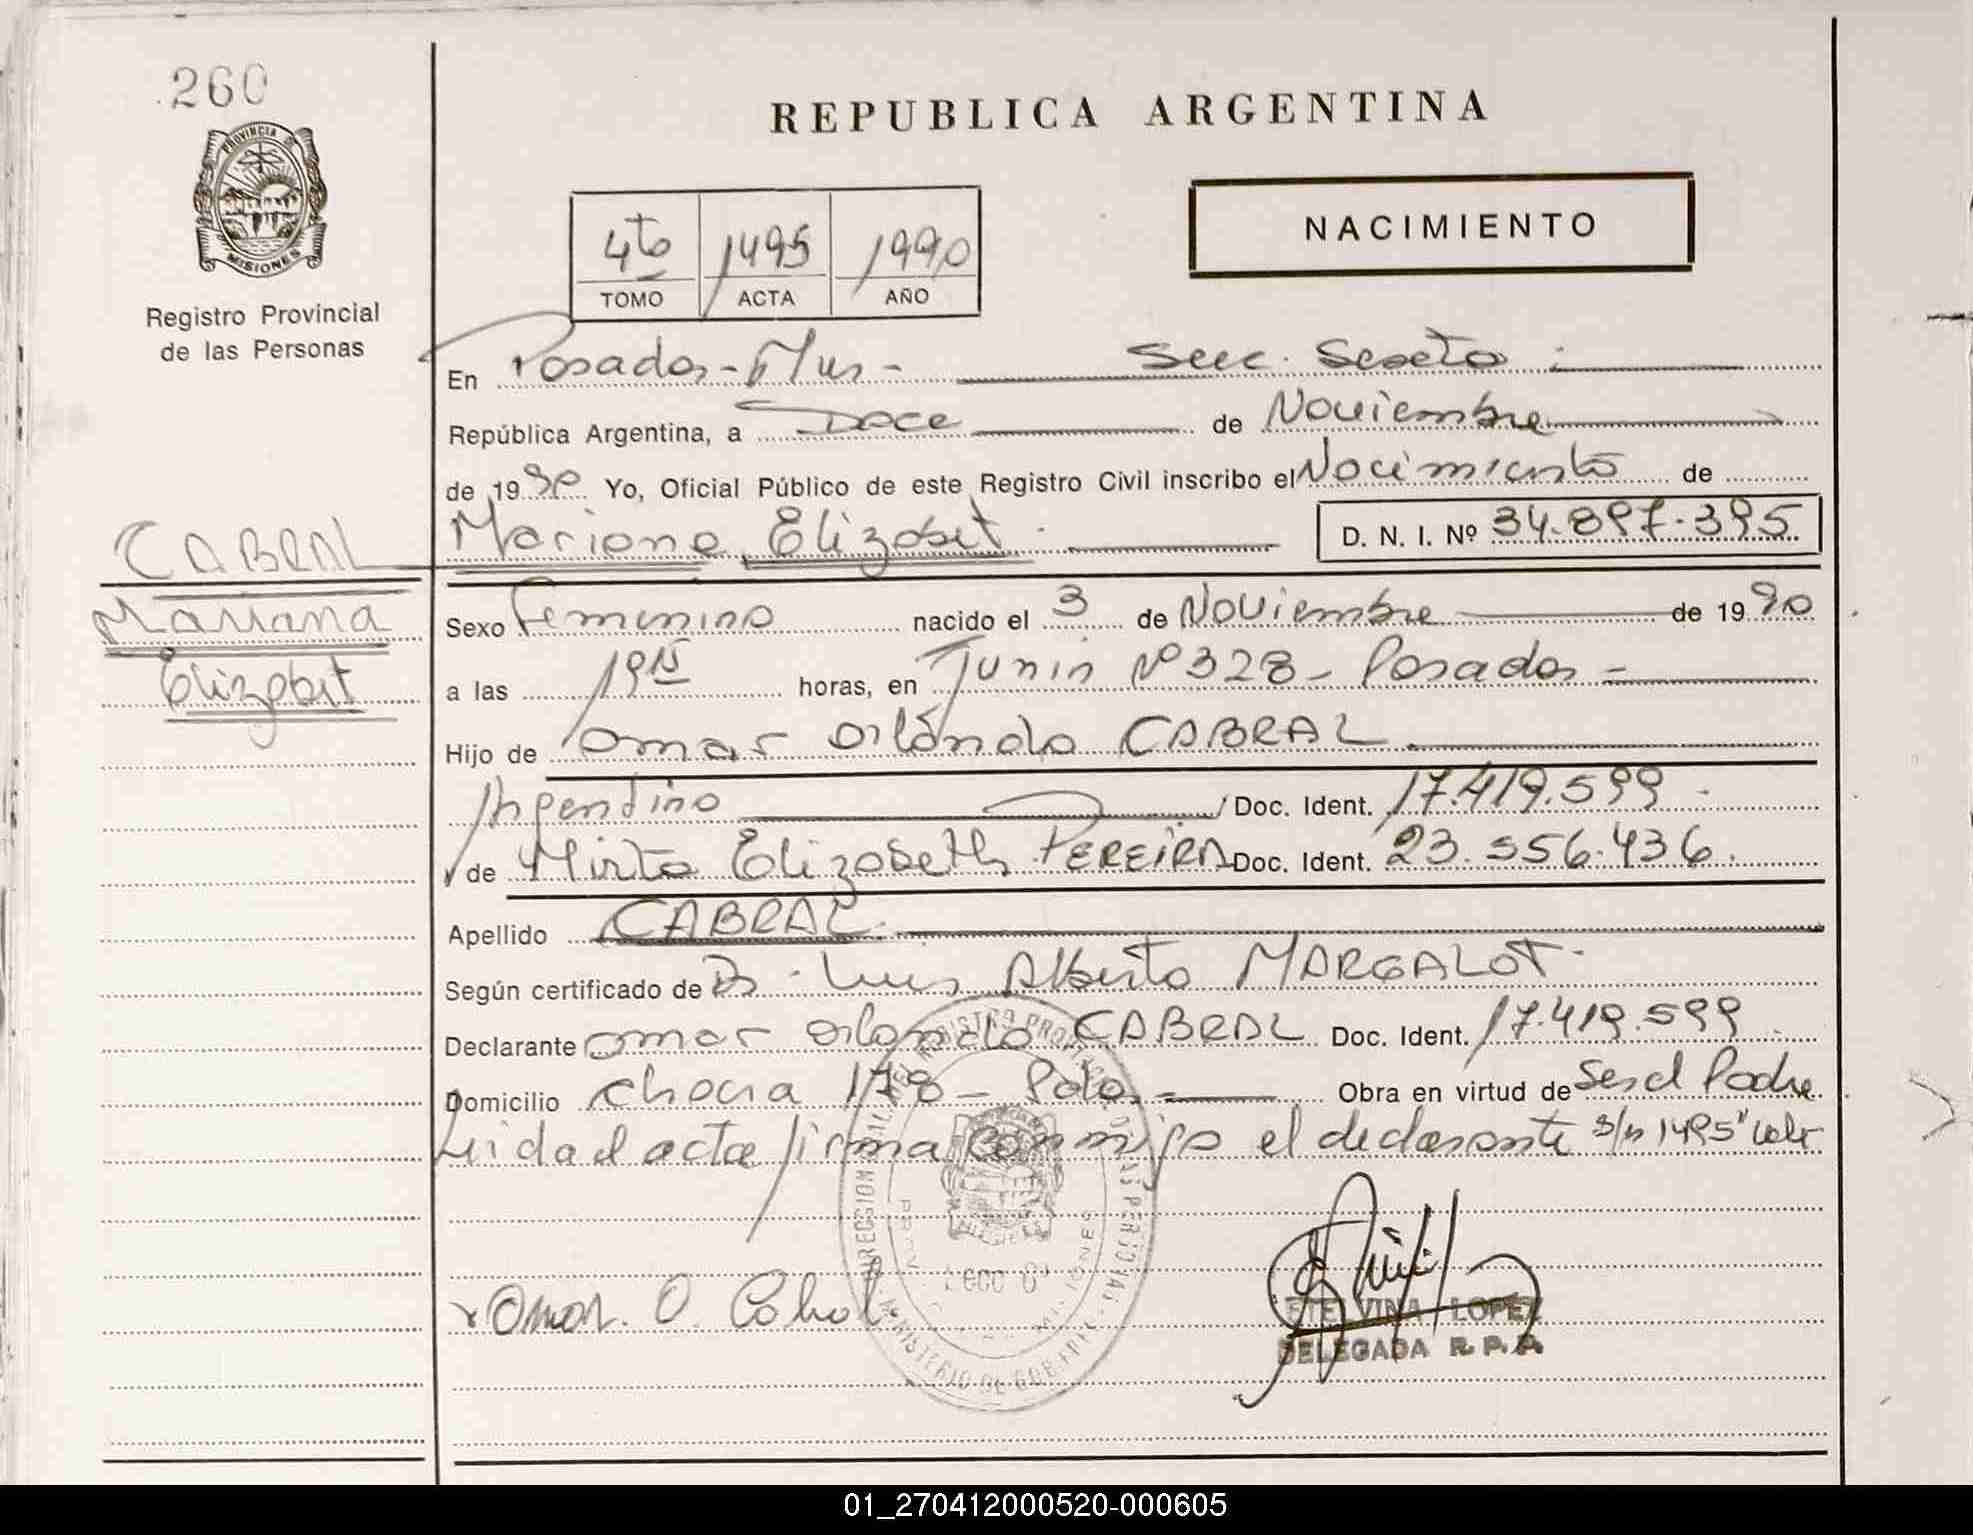 260
PROVINCIA DE
MISIONES
Registro Provincial
de las Personas
REPUBLICA ARGENTINA
4to 1495 1990
TOMO ACTA AÑO
NACIMIENTO
En Posadas - Mnes - Secc. Sexta
República Argentina, a Doce de Noviembre
de 1990 Yo, Oficial Público de este Registro Civil inscribo el Nacimiento de
CABRAL
Mariana
Elizabet
Mariana Elizabet D. N. I. Nº 34.897.395
Sexo Femenino nacido el 3 de Noviembre de 1990
a las 19 15 horas, en Junin Nº 328 - Posadas =
Hijo de Omar Orlando CABRAL
Argentino Doc. Ident. 17.419.599
y de Mirta Elizabeth PEREIRA Doc. Ident. 23.556.436.
Apellido CABRAL
Según certificado de Dr. Luis Alberto MARGALOT
Declarante Omar Orlando CABRAL Doc. Ident. 17.419.599
Domicilio Chacra 178 - Pdas = Obra en virtud de Ser el Padre
Leida el acta firma conmigo el declarante s/r 1495" Vale
Omar. O. Cabral
ETELVINA LOPEZ
DELEGADA R. P. P.
01_270412000520-000605